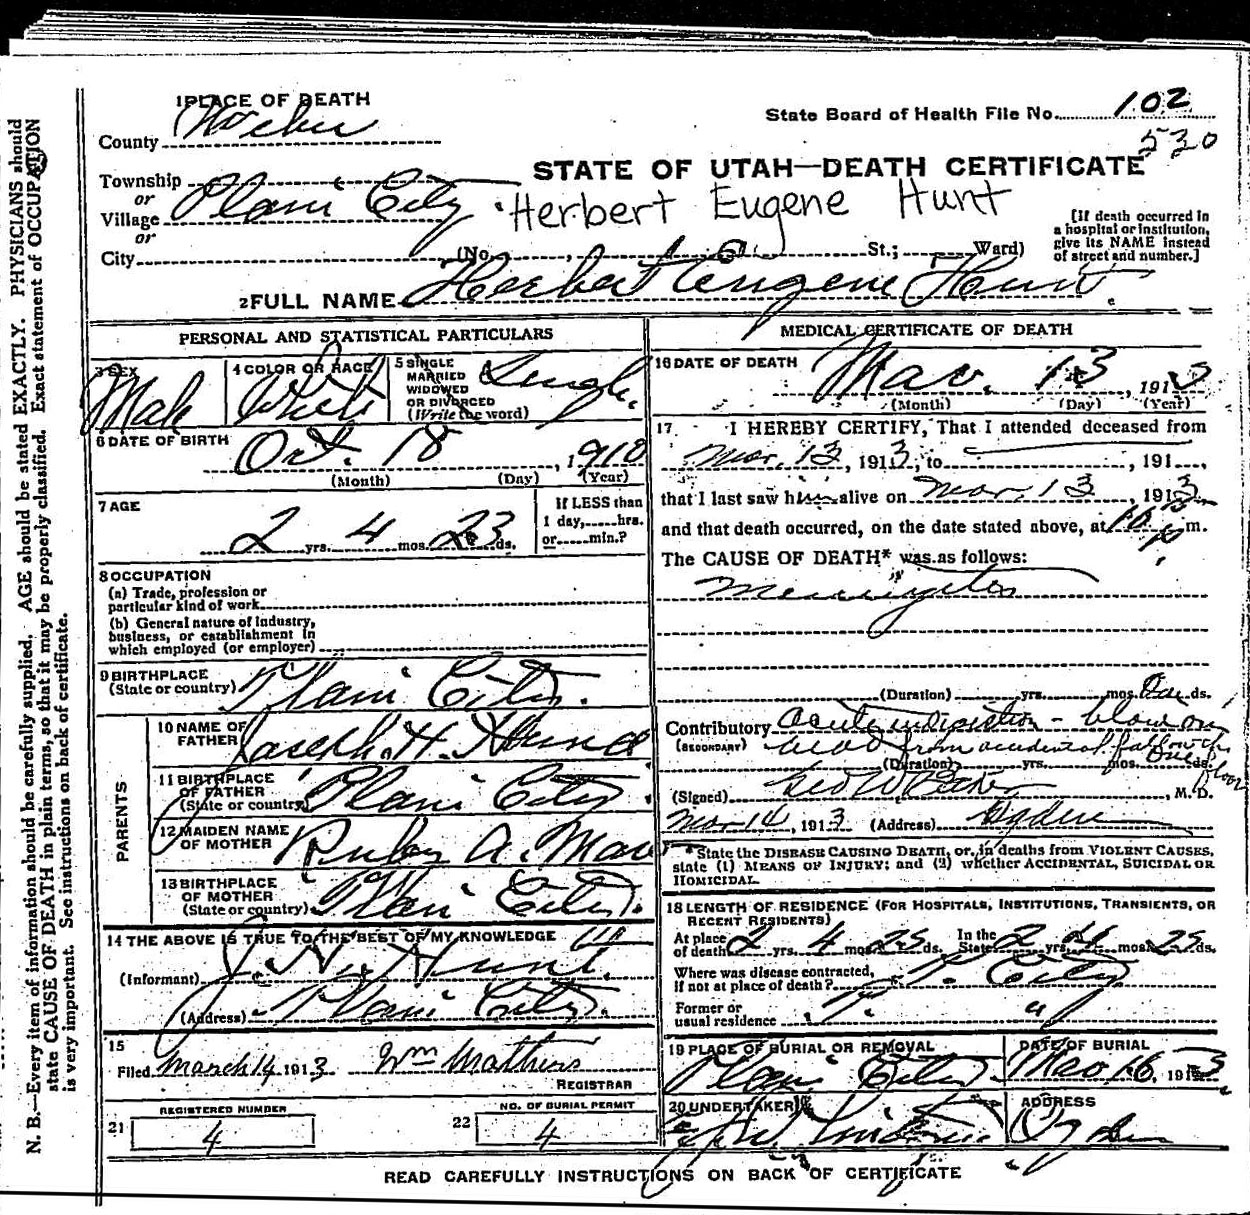 1 PLACE OF DEATH
County Weber
State Board of Health File No. 102
530
STATE OF UTAH—DEATH CERTIFICATE
Township
or
Village Plain City
or
City
Herbert Eugene Hunt
(No. , St.; Ward)
[If death occurred in
a hospital or institution,
give its NAME instead
of street and number.]
2 FULL NAME Herbert Eugene Hunt.
PERSONAL AND STATISTICAL PARTICULARS
3 SEX Male
4 COLOR OR RACE White
5 SINGLE
MARRIED
WIDOWED
OR DIVORCED
(Write the word) Single.
6 DATE OF BIRTH
Oct. 18, 1910
(Month) (Day) (Year)
7 AGE
2 yrs. 4 mos. 23 ds.
If LESS than
1 day,.....hrs.
or.....min.?
8 OCCUPATION
(a) Trade, profession or
particular kind of work
(b) General nature of industry,
business, or establishment in
which employed (or employer)
9 BIRTHPLACE
(State or country) Plain City.
PARENTS
10 NAME OF
FATHER Joseph H. Hunt
11 BIRTHPLACE
OF FATHER
(State or country) Plain City.
12 MAIDEN NAME
OF MOTHER Ruby A.
13 BIRTHPLACE
OF MOTHER
(State or country) Plain City.
14 THE ABOVE IS TRUE TO THE BEST OF MY KNOWLEDGE
(Informant) J. H. Hunt.
(Address) Plain City.
15
Filed March 14 1913 Wm
REGISTRAR
REGISTERED NUMBER
21 4
NO. OF BURIAL PERMIT
22 4
MEDICAL CERTIFICATE OF DEATH
16 DATE OF DEATH
Mar. 13, 1913
(Month) (Day) (Year)
17 I HEREBY CERTIFY, That I attended deceased from
Mar. 13, 1913, to , 191 ,
that I last saw him alive on Mar. 13, 1913
and that death occurred, on the date stated above, at p m.
The CAUSE OF DEATH* was as follows:
Meningitis
(Duration) yrs. mos. ds.
Contributory Acute indigestion - blow on
(SECONDARY) head from accidental fall on the floor
(Duration) yrs. mos. One ds.
(Signed) Geo W , M. D.
Mar 14, 1913 (Address) Ogden
*State the DISEASE CAUSING DEATH, or, in deaths from VIOLENT CAUSES,
state (1) MEANS OF INJURY; and (2) whether ACCIDENTAL, SUICIDAL OR
HOMICIDAL.
18 LENGTH OF RESIDENCE (FOR HOSPITALS, INSTITUTIONS, TRANSIENTS, OR
RECENT RESIDENTS)
At place
of death 2 yrs. 4 mos. 25 ds. In the
State 2 yrs. 4 mos. 25 ds.
Where was disease contracted,
if not at place of death? P. City
Former or
usual residence
19 PLACE OF BURIAL OR REMOVAL
Plain City.
DATE OF BURIAL
Mar 16, 1913
20 UNDERTAKER
ADDRESS
Ogden
READ CAREFULLY INSTRUCTIONS ON BACK OF CERTIFICATE
N. B.—Every item of information should be carefully supplied. AGE should be stated EXACTLY. PHYSICIANS should
state CAUSE OF DEATH in plain terms, so that it may be properly classified. Exact statement of OCCUPATION
is very important. See instructions on back of certificate.